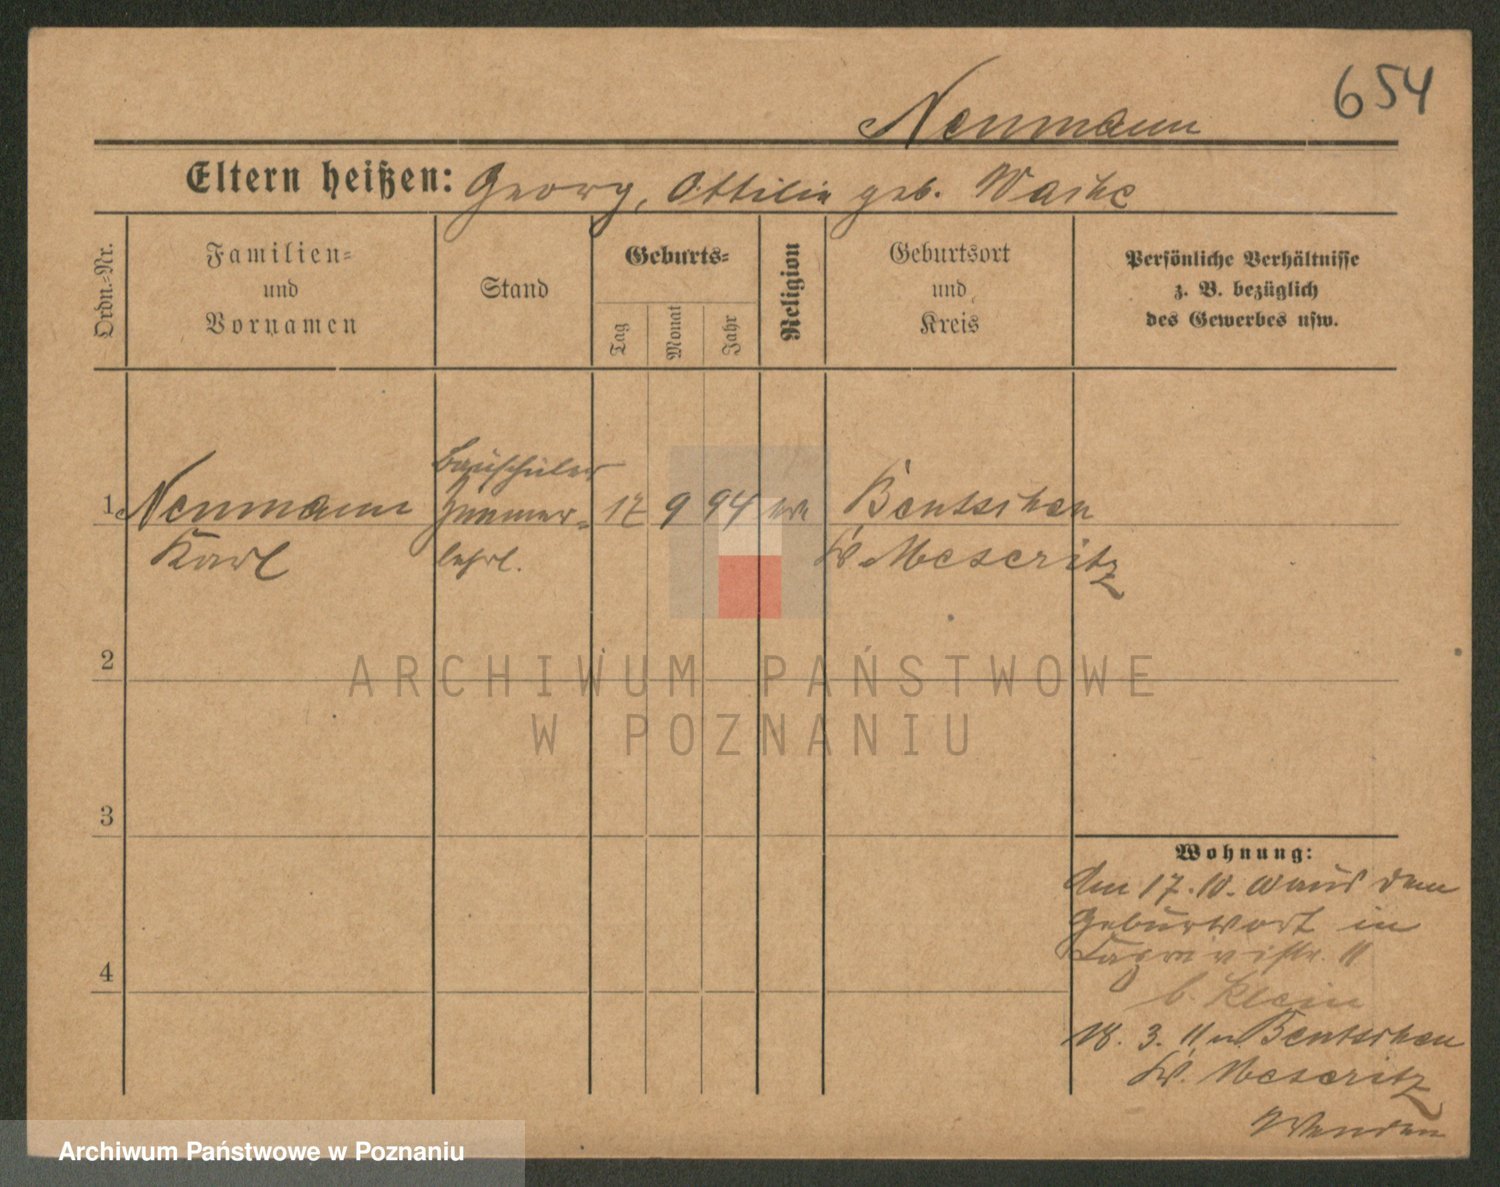 654
Neumann
Eltern heißen: Georg, Ottilie geb. Waske
Ordn.-Nr.
Familien-
und
Vornamen
Stand
Geburts-
Tag
Monat
Jahr
Religion
Geburtsort
und
Kreis
Persönliche Verhältnisse
z. B. bezüglich
des Gewerbes usw.
Bauschüler
1 Neumann Zimmer- 17 9 94 Bentschen
Karl lehrl. Kr. Meseritz
2
3
4
Wohnung:
den 17. 10. aus dem
Geburtsort in
11
b. Klein
18. 3. 11 n. Bentschen
Kr. Meseritz
Wenden
ARCHIWUM PAŃSTWOWE
W POZNANIU
Archiwum Państwowe w Poznaniu